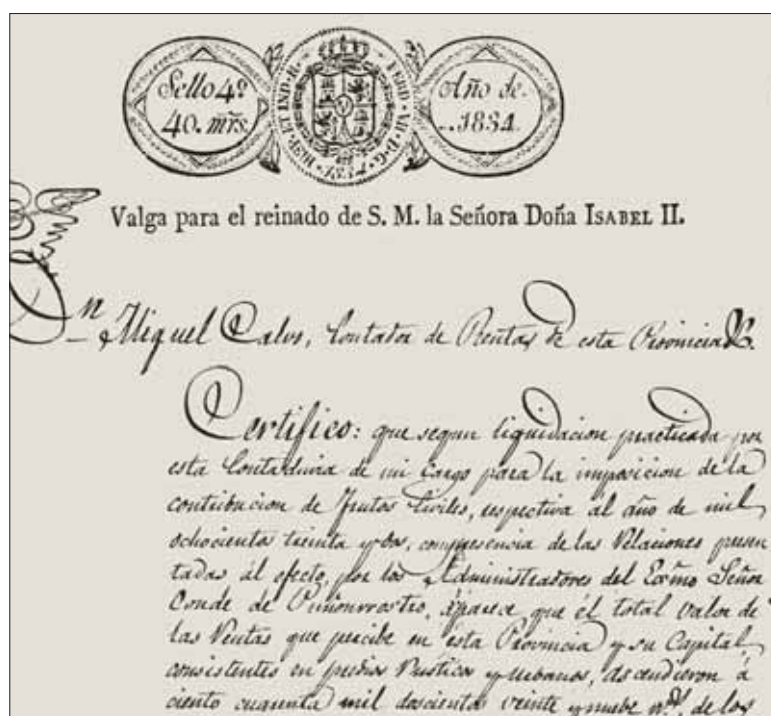 Sello 4º
40. mrs.
HISP. ET IND. R. FERD. VII. D. G. 1834
Año de
1834.
Valga para el reinado de S. M. la Señora Doña ISABEL II.
Dn. Miguel Calvo, Contador de Rentas de esta Provincia &.
Certifico: que segun liquidacion practicada por
esta Contaduria de mi cargo para la imposicion de la
contribucion de frutos Civiles, respectiva al año de mil
ochocientos treinta y dos, con presencia de las Relaciones presen
tadas ál efecto, por los Administradores del Exmo Señor
Conde de Puñonrrostro, áparece que él total valor de
las Rentas que percibe en ésta Provincia y su Capital,
consistentes en predios Rusticos y urbanos, ascendieron á
ciento cuarenta mil doscientos veinte y nuebe rs. de los